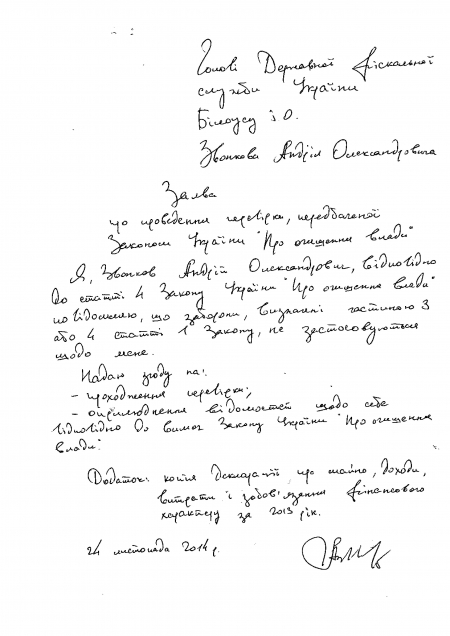 Голові Державної фіскальної
служби України
Білоусу І.О.
Звонкова Андрія Олександровича
Заява
про проведення перевірки, передбаченої
Законом України "Про очищення влади"
Я, Звонков Андрій Олександрович, відповідно
до статті 4 Закону України "Про очищення влади"
повідомляю, що заборони, визначені частиною 3
або 4 статті 1 Закону, не застосовуються
щодо мене.
Надаю згоду на:
- проходження перевірки;
- оприлюднення відомостей щодо себе
відповідно до вимог Закону України "Про очищення
влади".
Додаток: копія декларації про майно, доходи,
витрати і зобов'язання фінансового
характеру за 2013 рік.
24 листопада 2014 р.